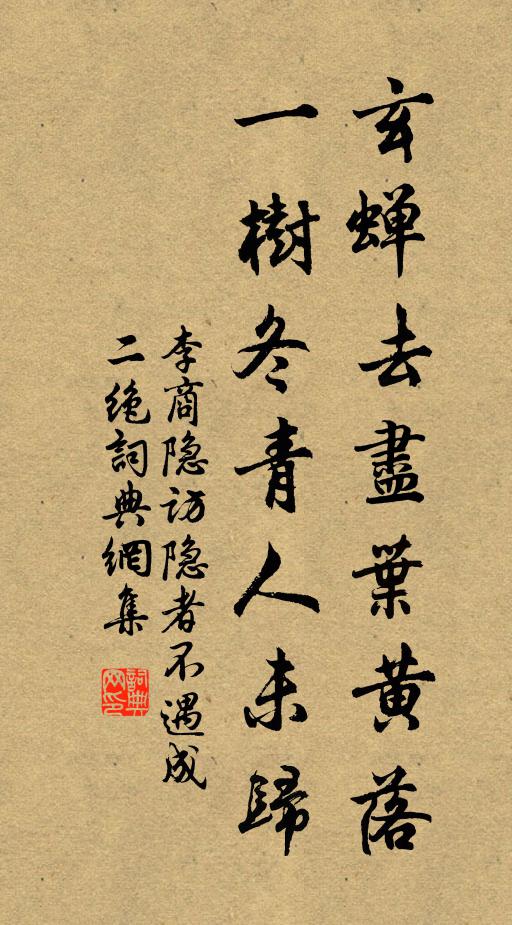 玄蝉去盡葉黃落
一樹冬青人未歸
李商隐访隐者不遇成
二绝詞典網集
詞典网印